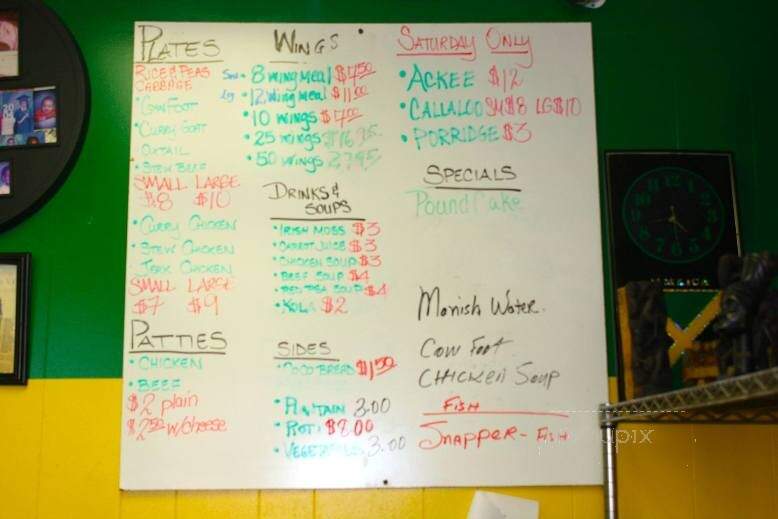 PLATES
RICE & PEAS
CABBAGE
• COWFOOT
• CURRY GOAT
OXTAIL
• STEW BEEF
SMALL LARGE
$8 $10
• CURRY CHICKEN
• STEW CHICKEN
JERK CHICKEN
SMALL LARGE
$7 $9
PATTIES
• CHICKEN
• BEEF
$2 plain
$2.50 w/cheese
WINGS
• 8 wing meal
• 12 wing meal $11.00
• 10 wings
• 25 wings $16.95
• 50 wings
DRINKS &
SOUPS
• IRISH MOSS $3
• CARROT JUICE $3
• CHICKEN SOUP $3
• BEEF SOUP $4
• RED PEA SOUP $4
• KOLA $2
SIDES
• COCO BREAD $1.50
• PLANTAIN 3.00
• ROTI $8.00
• VEGETABLES 3.00
SATURDAY ONLY
• ACKEE $12
• CALLALOO SM $8 LG $10
• PORRIDGE $3
SPECIALS
Pound Cake
Manish Water.
Cow Foot
CHICKEN SOUP
FISH
SNAPPER - FISH
12
JAMAICA